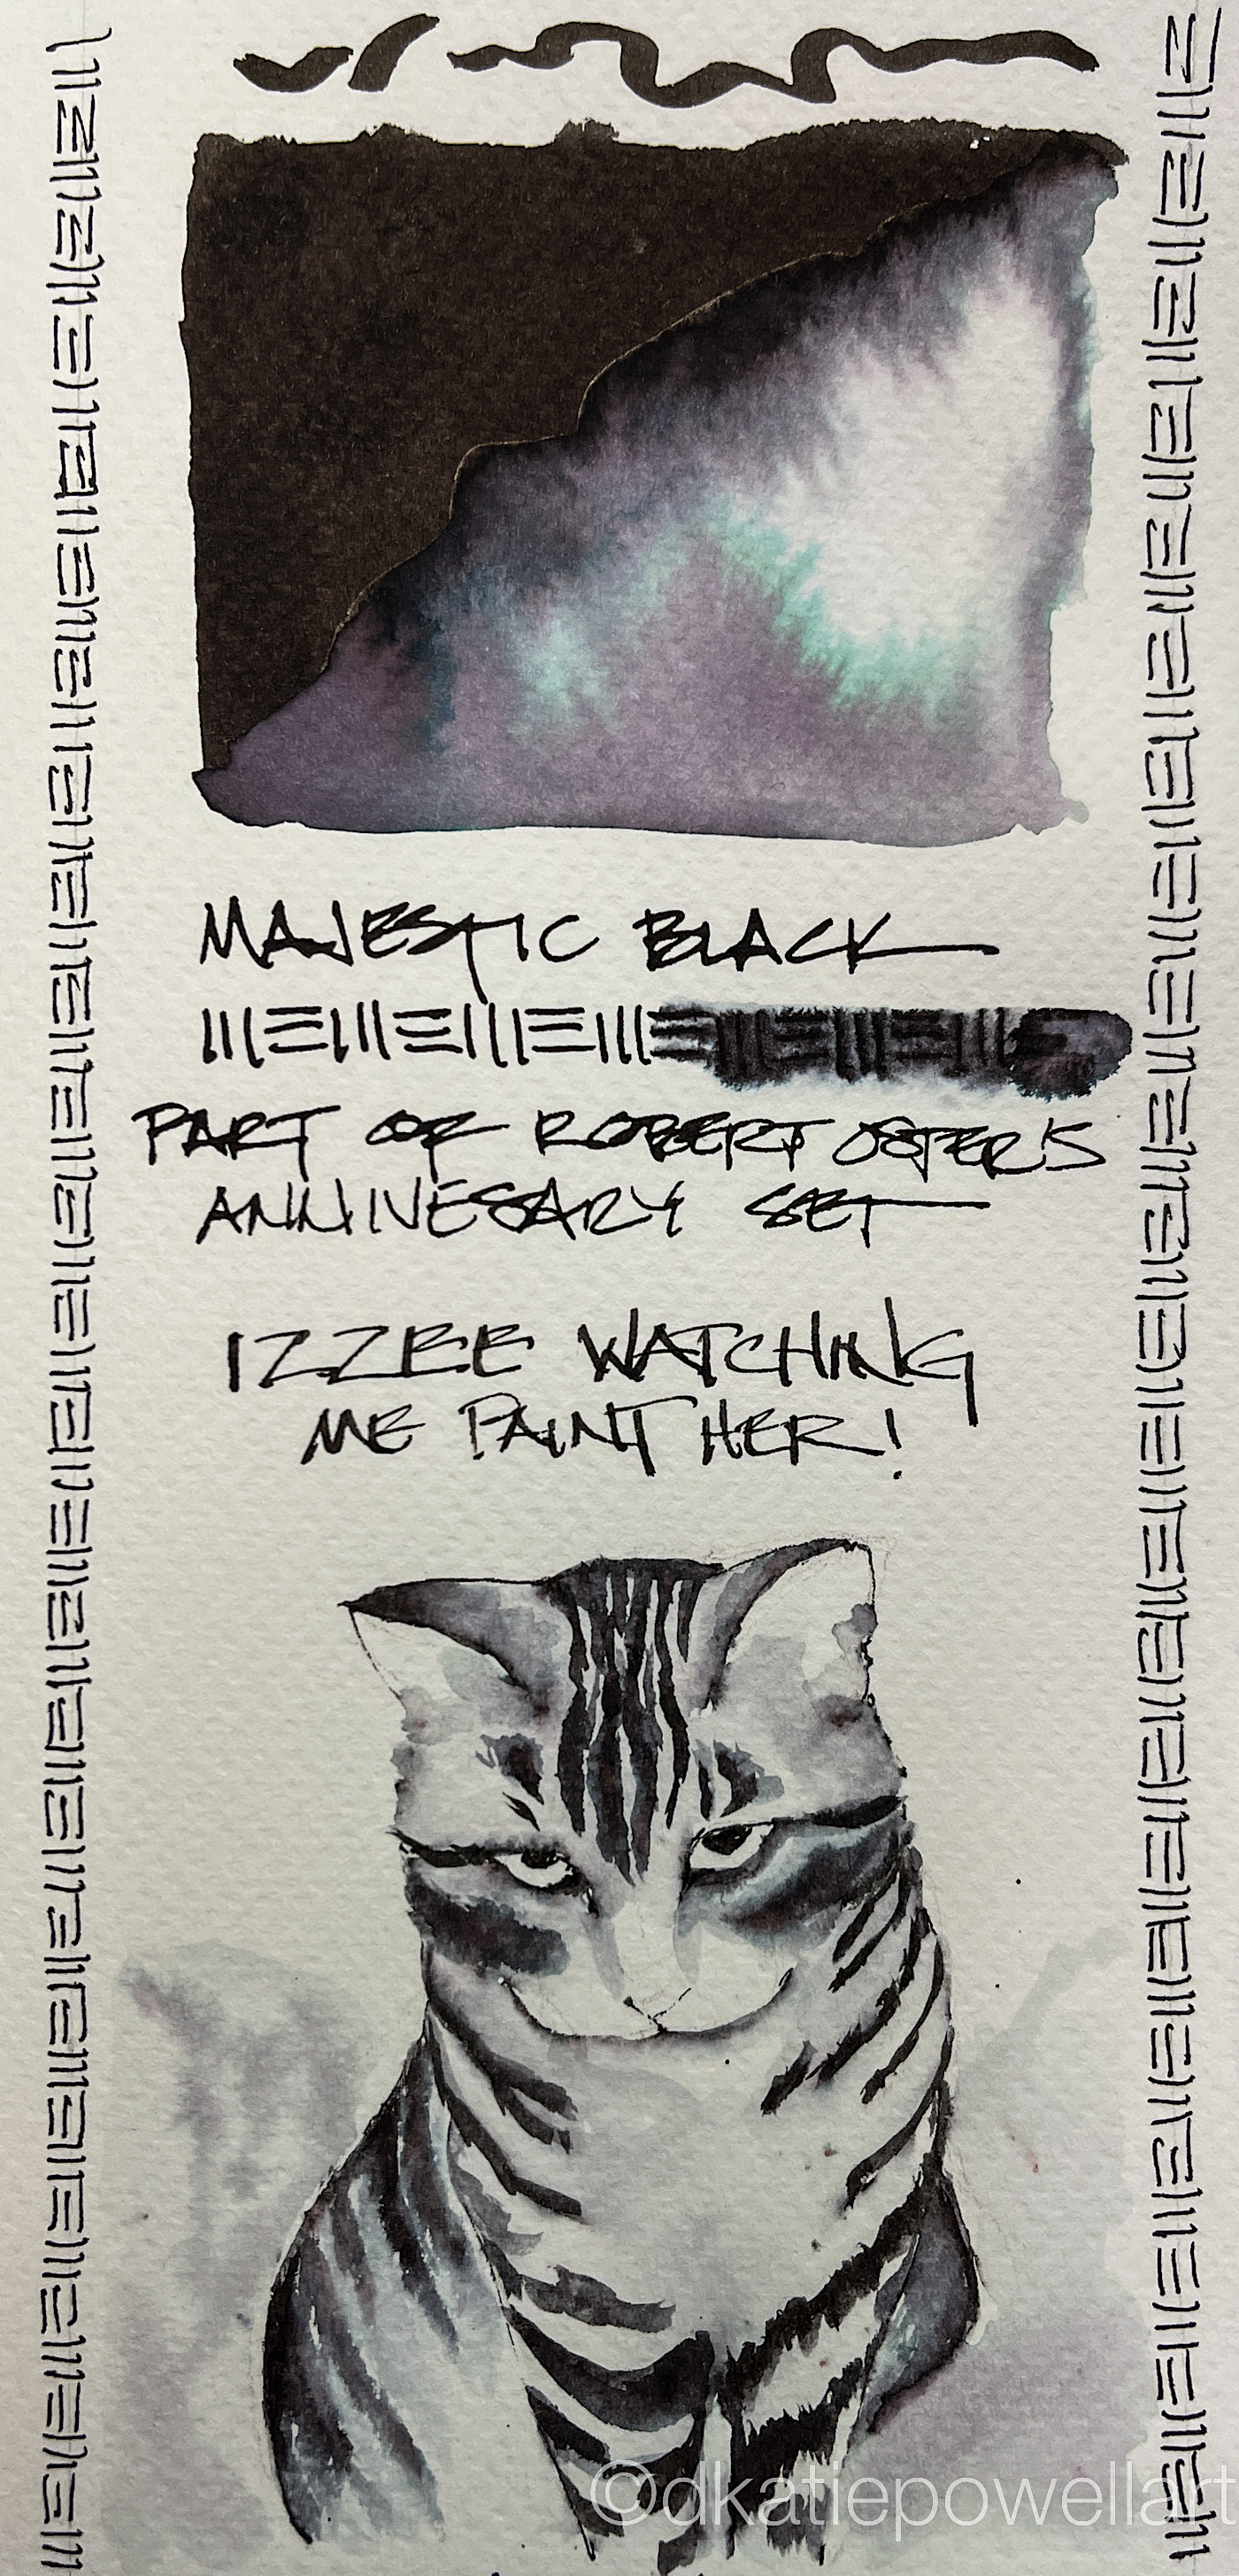 MAJESTIC BLACK
PART OF ROBERT OSTER'S
ANNIVESARY SET
IZZEE WATCHING
ME PAINT HER!
©dkatiepowellart